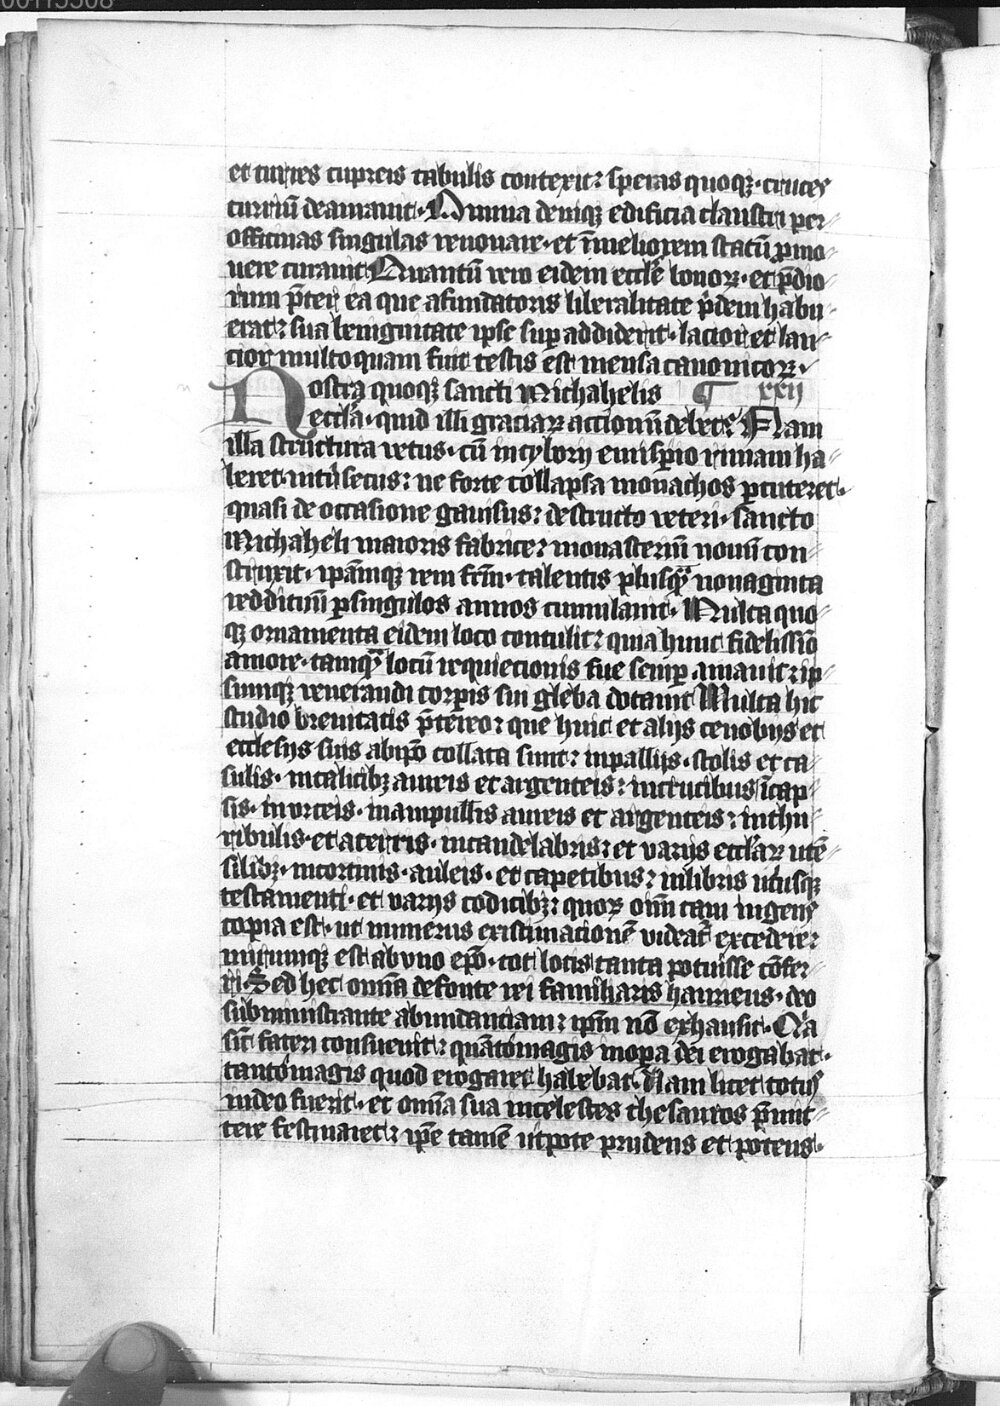 et turres cupreis tabulis contexit: speras quoqꝫ· cruces
turriū deaurauit· Omnia deniqꝫ edificia claustri per
officinas singulas renouare· et ī meliorem statū ꝓmo
uere curauit Quantū vero eidem eccłe bonoꝝ· et p̄dio
rum p̄ter ea que a fundatoris liberalitate p̄dem habu
erat: sua benignitate ipse suꝑ addiderit· lacior et lau
cior multo quam fuit testis est mensa canonicoꝝ·
Nostra quoqꝫ sancti Michahelis ¶ xxij
eccłia· quid illi graciaꝝ actionū debet: Nam
illa structura vetus· cū in cyborij emisꝑio rimam ha
beret intͥsecus: ne forte collapsa monachos ꝑcuteret·
quasi de occasione gauisus: destructo veteri· sancto
Michaheli maioris fabrice: monasteriū nouū con
struxit· ipāmqꝫ rem frm̄· talentis plusqᷓ nonaginta
reddituū ꝑ singulos annos cumulauit· Multa quo
qꝫ ornamenta eidem loco contulit: quia hunc fidelissīo
amore· tamqᷓ locū requiecionis sue semꝑ amauit: ip
sumqꝫ venerandi corꝑis sui gleba dotauit Multa hic
studio breuitatis p̄tereo: que huic et alijs cenobijs et
ecclesijs suis ab ip̄o collata sunt: in pallijs· stolis et ca
sulis· in calicibꝫ aureis et argenteis: in crucibus ī cap
sis· in vrceis· in ampullis aureis et argenteis: in thu
ribulis· et acerris· in candelabris: et varijs eccłiaꝝ utē
silibꝫ· in cortinis· auleis· et tapetibus: in libris utͥusqꝫ
testamenti· et varijs codicibꝫ: quoꝝ oīm tam ingens
copia est· ut numerus existimacionē videat᷑ excedere:
mirumqꝫ est ab vno ep̄o· tot locis tanta potuisse cōfer
ri· Sed hec omīa de fonte rei familiaris hauriens· deo
subministrante abundanciam: ip̄m nō exhausit· Na
sicut fateri consueuit: quātomagis inopia dei erogabat·
tantomagis quod erogaret habebat· Nam licet totus
in deo fuerit· et omīa sua in celestes thesauros p̄mit
tere festinaret: ip̄e tamē utpote prudens et potens·